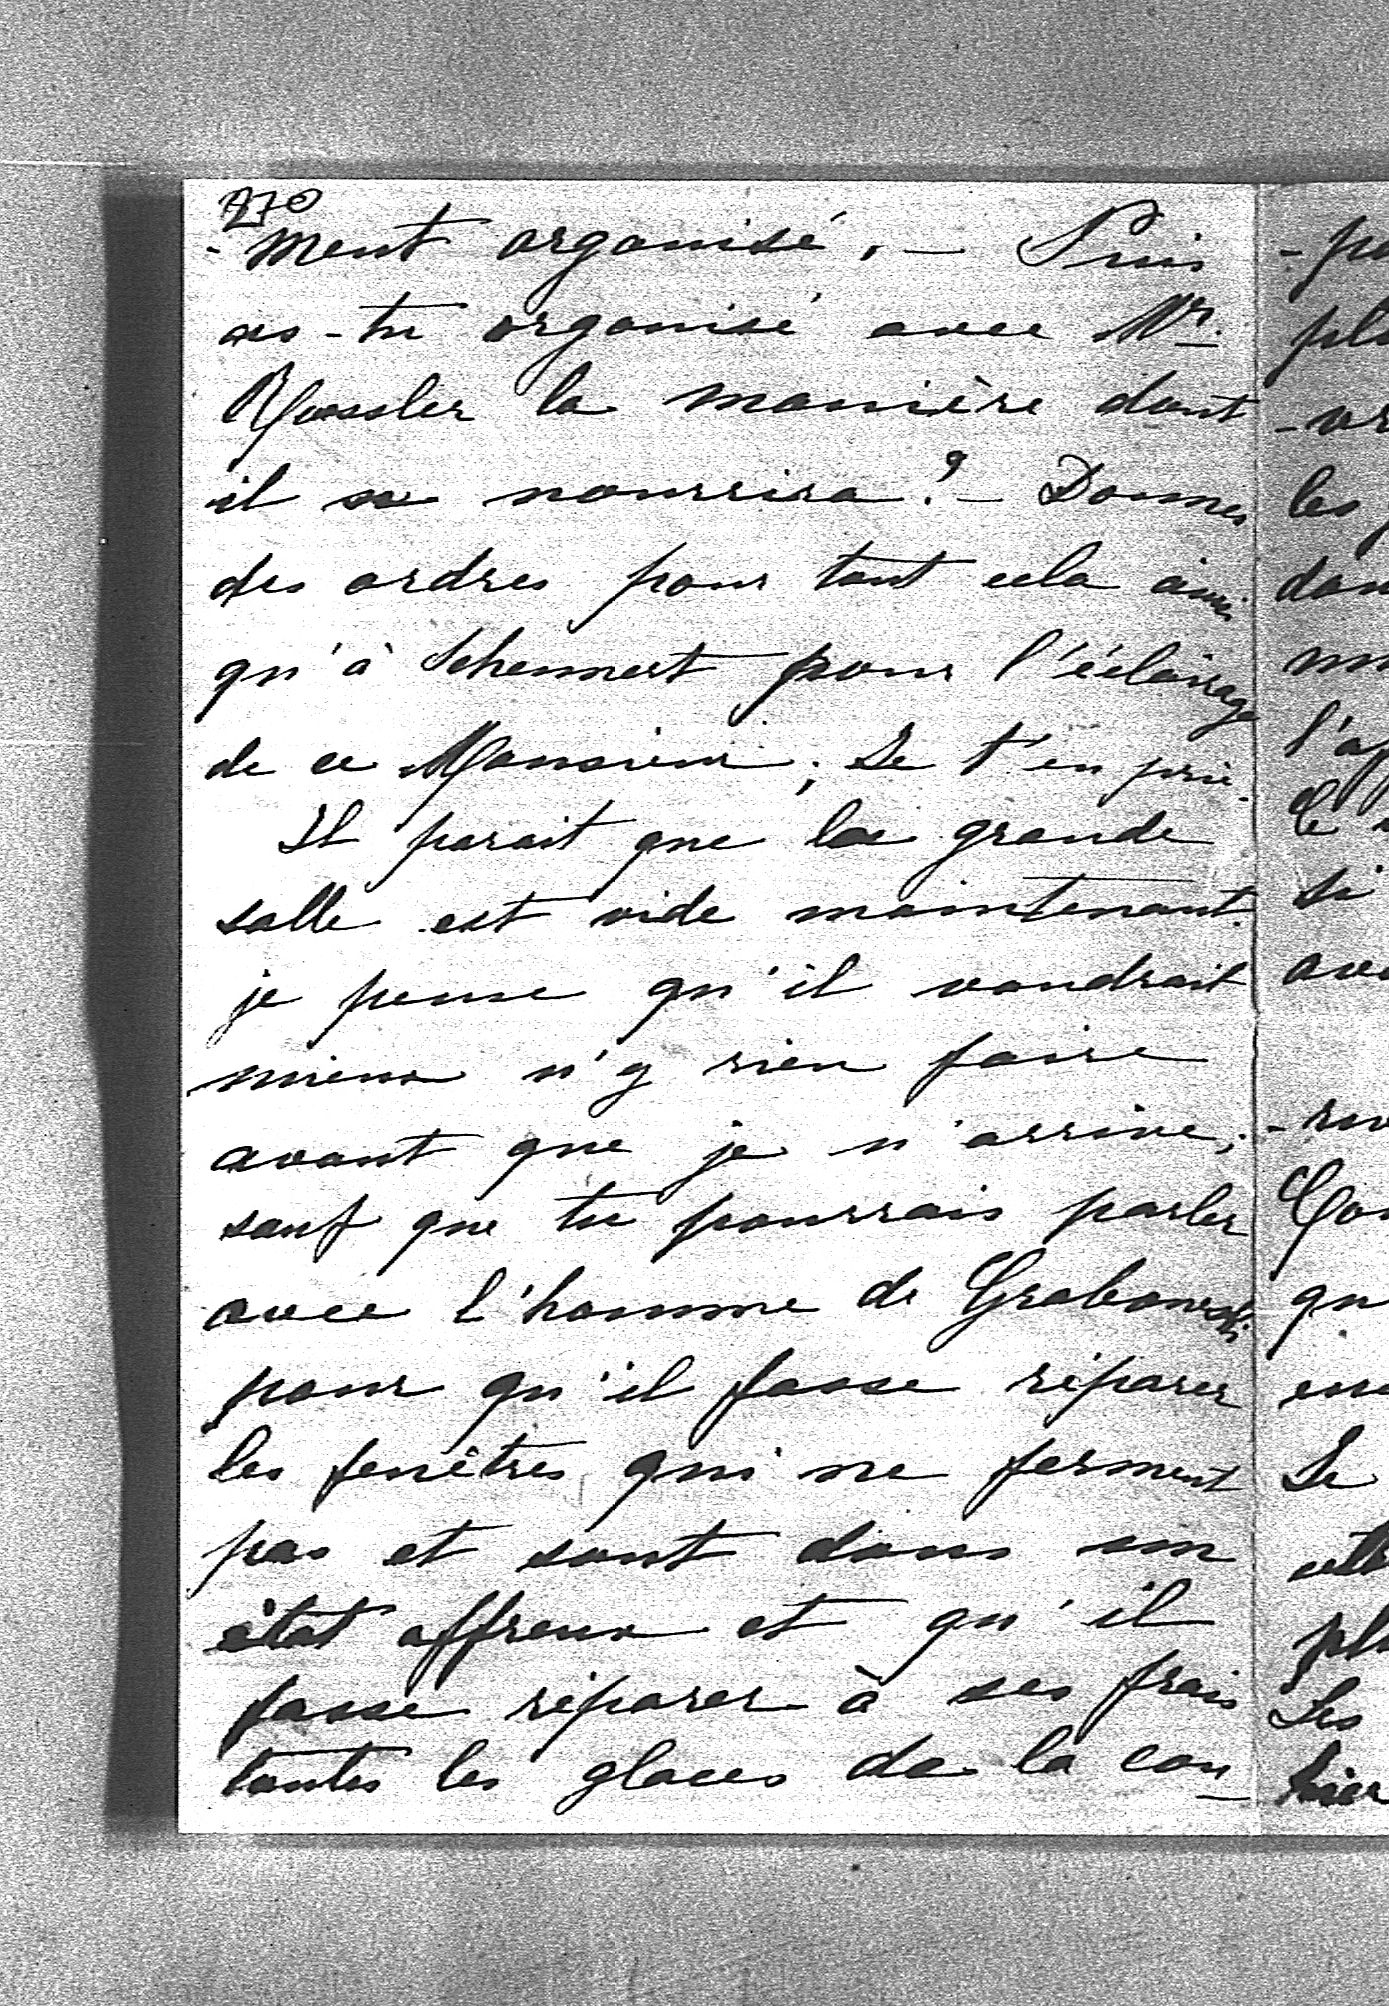 270
-ment organisé. — Puis
as-tu organisé avec Mr.
Rossler la manière dont
il se nourrira? — Donnes
des ordres pour tout cela ainsi
qu'à Schemmert pour l'éclairage
de ce Monsieur; Je t'en prie.
Il parait que la grande
salle est vide maintenant.
je pense qu'il vaudrait
mieux n'y rien faire
avant que je n'arrive;
sauf que tu pourrais parler
avec l'homme de Grabowski
pour qu'il fasse réparer
les fenêtres qui ne ferment
pas et sont dans un
état affreux et qu'il
fasse réparer à ses frais
toutes les glaces de la cou-
les
l'
si
qu
Le
Les
hier